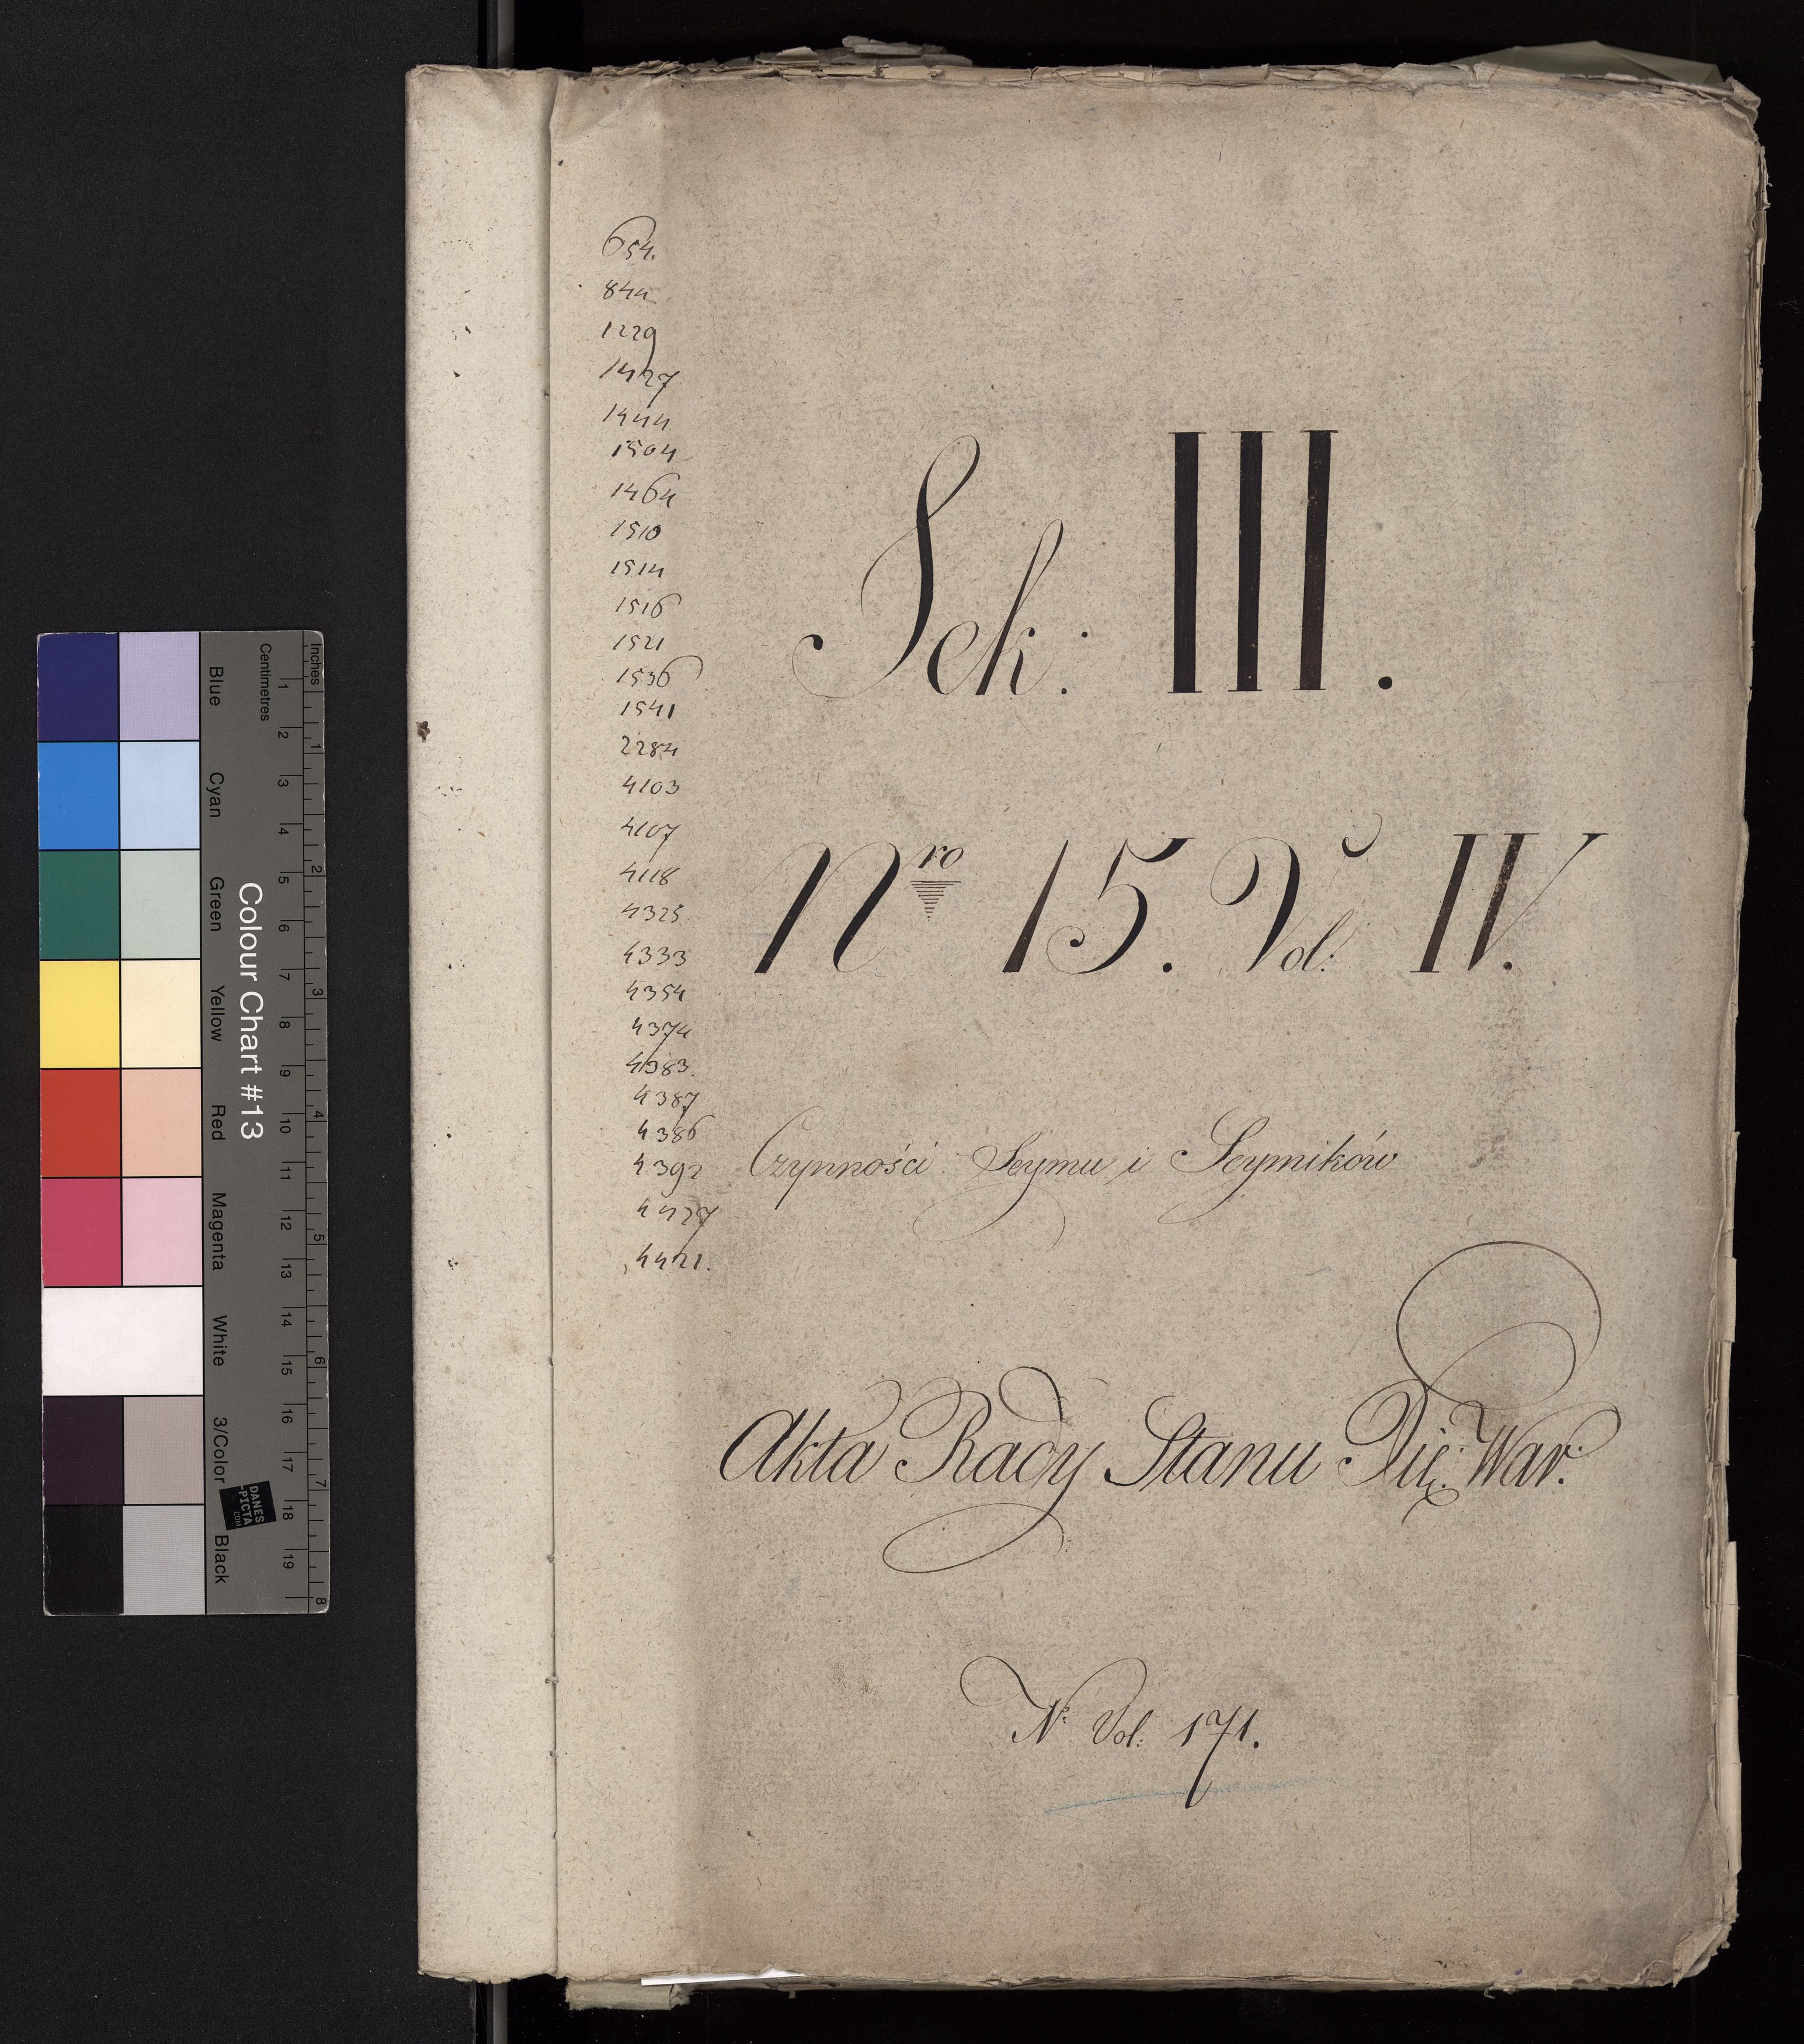 654.
844
1229
1427
1444
1504
1464
1510
1514
1516
1521
1536
1541
2284
4103
4107
4118
4325.
4333
4354
4374
4383.
4387
4386
4392
4427
4421.
Sek: III.
Nro 15. Vol: IV.
Czynności Seymu i Seymików
Akta Rady Stanu Xię: War:
Nr Vol: 171.
Colour Chart #13
Blue Cyan Green Yellow Red Magenta White 3/Color Black
Centimetres 1 2 3 4 5 6 7 8 9 10 11 12 13 14 15 16 17 18 19
Inches 1 2 3 4 5 6 7 8
DANES
-PICTA
.COM